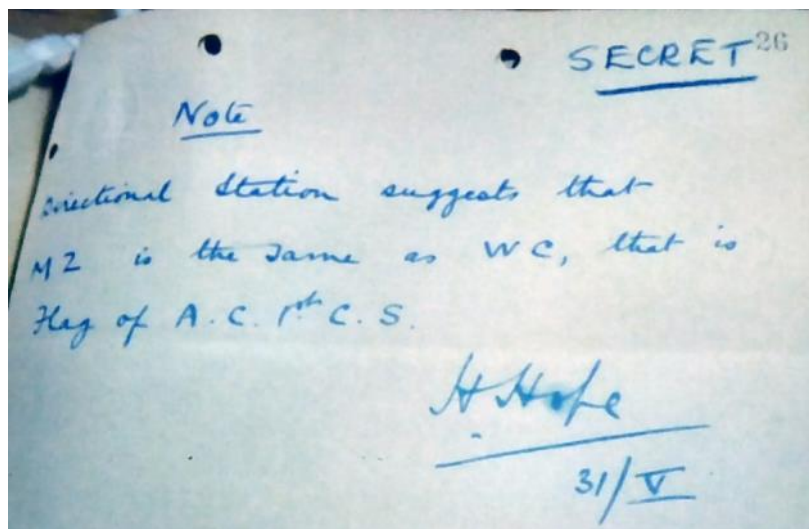 SECRET 26
Note
Directional Station suggests that
MZ is the same as WC, that is
Flag of A.C. 1st C.S.
H Hope
31/V